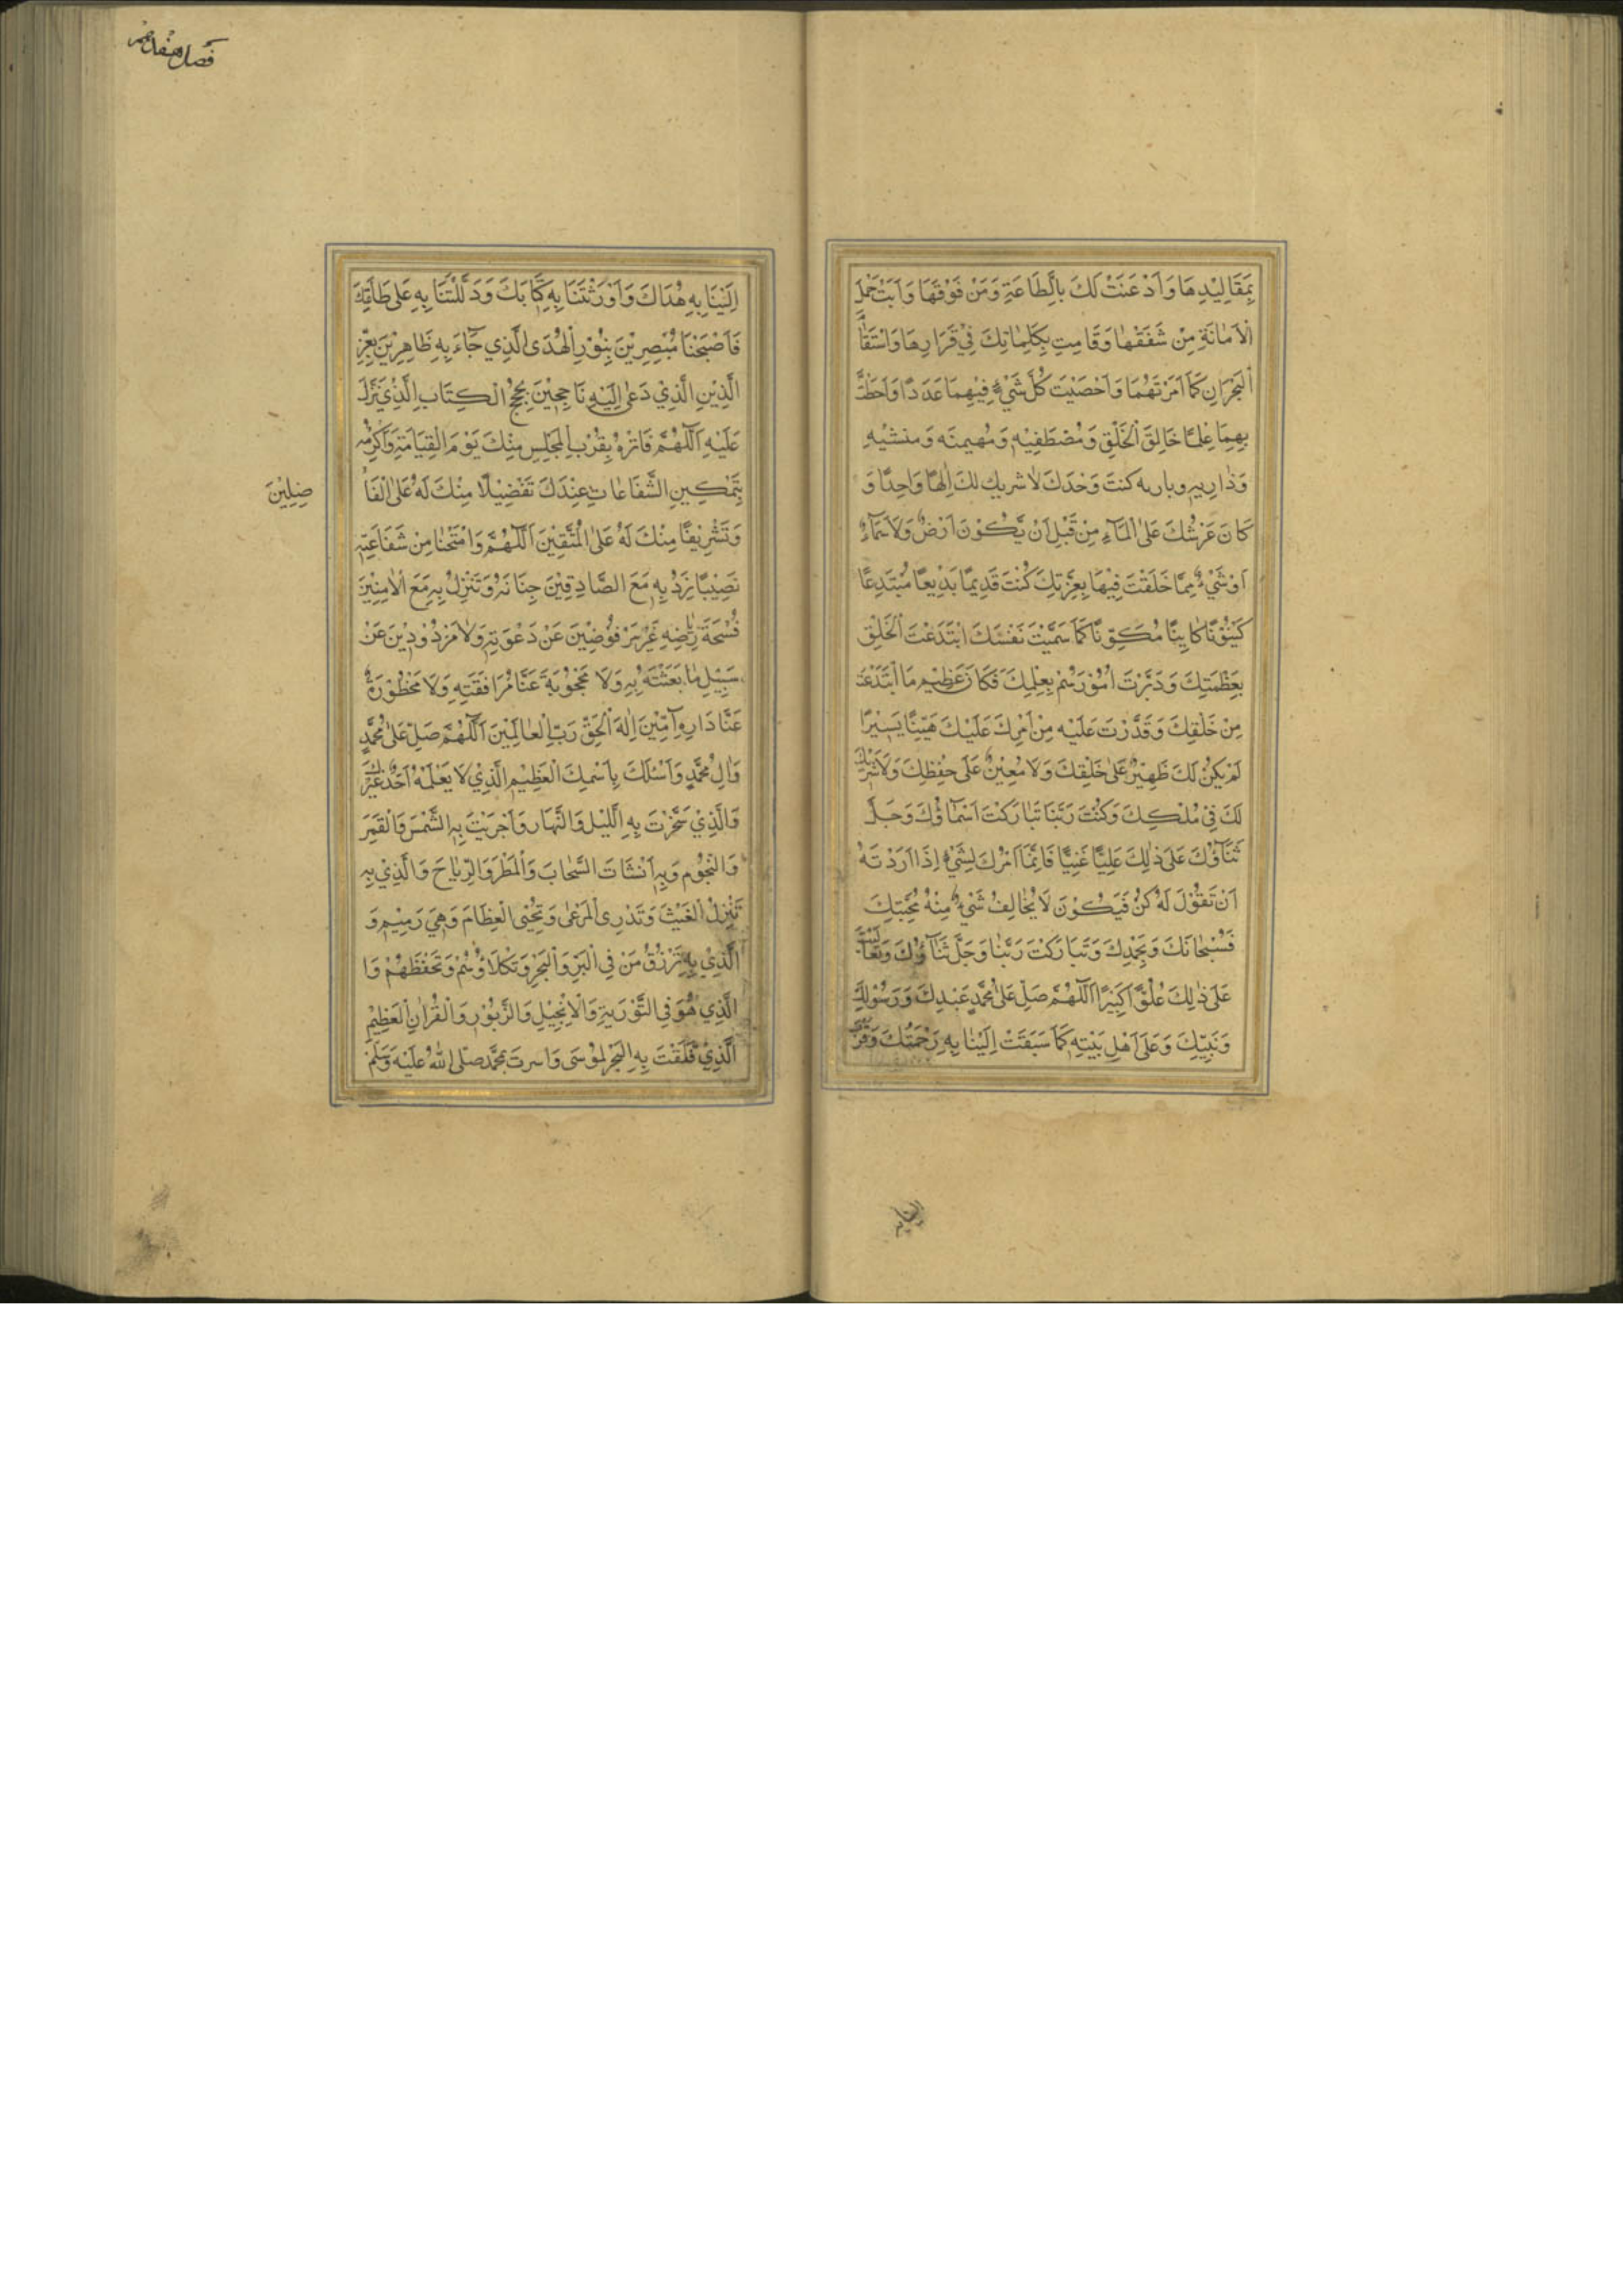 بِمَقَالِيْدِهَا وَاَذْعَنَتْ لَكَ بِالطَّاعَةِ وَمَنْ فَوْقَهَا وَاَبَتْ حَمْلَ
الْاَمَانَةِ مِنْ شَفَقْهَا وَقَامتِ بِكَلِمٰاتِكَ فِيْ قَرَارِهَا وَاسْتَقَا
اَلْبَحْرَانِ كَمَا اَمَرْتَهُمَا وَاَحْصَيْتَ كُلَّ شَيْءٍ فِيْهِمَا عَدَدًا وَاَحَطْتَ
بِهِمَا عِلْمًا خَالِقَ الْخَلْقِ وَمُصْطَفِيْهِ وَمُهيمنَه وَمنشئيْهِ
وَذٰارِيهِ وبارىه كنتَ وَحْدَكَ لاٰ شريك لكَ اِلٰهًا وَاحِدًا وَ
كَانَ عَرْشُكَ عَلَى الْمَاۤءِ مِنْ قَبْلِ اَنْ يَكُوْنَ اَرْضٌ وَلَا سَمَاۤءٌ
اَوْ شَيْءٌ مِمَّا خَلَقْتَ فِيْهَا بِعِزَّتِكَ كُنْتَ قَدِيمًا بَدِيْعًا مُبْتَدِعًا
كَيْنُوْنًا كَايِنًا مُكَوِّنًا كَمَا سَمَّيْتَ نَفْسَكَ ابْتَدَعْتَ الْخَلْقِ
بِعَظْمَتِكَ وَدَبَّرْتَ اُمُوْرَهُمْ بِعِلْمِكَ فَكَانَ عَظِيْم مَا ابْتَدَعْتَ
مِنْ خَلْقِكَ وَقَدَّرْتَ عَلَيْهِ مِنْ اَمْرِكَ عَلَيْكَ هَيِّنًا يَسِيْرًا
لَمْ يَكُنْ لَكَ ظَهِيْرٌ عَلٰى خَلْقِكَ وَلَا مُعِيْنٌ عَلَى حِفْظِكَ وَلَا شَرِيْكَ
لَكَ فِيْ مُلْكِكَ وَكُنْتَ رَبَّنَا تَبٰارَكْتَ اَسْمَاۤؤُكَ وَجَلَّ
ثَنَاۤؤُكَ عَلَى ذٰلِكَ عَلِيًّا غَنِيًّا فَاِنَّمَا اَمْرُكَ لِشَيْءٍ اِذَا اَرَدْتَهُ
اَنْ تَقُوْلَ لَهُ كُنْ فَيَكُوْنَ لَا يُخٰالِفُ شَيْءٌ مِنْهُ مُحَبَّتِكَ
فَسُبْحٰانَكَ وَبِحَمْدِكَ وَتَبَارَكْتَ رَبَّنَا وَجَلَّ ثَنَاۤؤُكَ وَتَعَالَيْتَ
عَلَى ذٰلِكَ عُلُوًّا كَبِيْرًا اَللّٰهُمَّ صَلِّ عَلٰى مُحَمَّدٍ عَبْدِكَ وَرَسُوْلِكَ
وَنَبِيِّكَ وَعَلَى اَهْلِ بَيْتِهِ كَمَا سَبَقَتْ اِلَيْنَا بِهِ رَحْمَتُكَ وَقَرُبَ
الينا به
اِلَيْنَا بِهِ هُدَاكَ وَاَوْرَثْتَنَا بِهِ كِتَابَكَ وَدَلَّلْتَنَا بِهِ عَلَى طَاعَتِكَ
فَاَصْبَحْنَا مُبْصِرِيْنَ بِنُوْرِ الْهُدَى الَّذِي جَاۤءَ بِهِ ظَاهِرِيْنَ بِعِزِّ
الَّذِيْنِ الَّذِيْ دَعٰى اِلَيْهِ نَاجِيْنَ بِحُجُجِ الْكِتَابِ الَّذِيْ نَزَلَ
عَلَيْهِ اَللّٰهُمَّ فَاثِرْهُ بِقُرْبِ الْمَجْلِسِ مِنْكَ يَوْمَ الْقِيَامَةِ وَاَكْرِمْه
بِتَمْكِينِ الشَّفَاعٰاتِ عِنْدَكَ تَفْضِيْلًا مِنْكَ لَهُ عَلَى الْفَا
ضِلِيْنَ
وَتَشْرِيْفًا مِنْكَ لَهُ عَلَى الْمُتَّقِيْنَ اَللّٰهُمَّ وَامْنَحْنٰا مِنْ شَفَاعَتِهِ
نَصِيْبًا نَرِدُ بِهِ مَعَ الصَّادِقِيْنَ جِنَانَهُ وَنَنْزِلُ بِهِ مَعَ الْاٰمِنِيْنَ
فُسْحَةَ رِيَاضِهِ غَيْرَ مَرْفُوْضِيْنَ عَنْ دَعْوَتِهِ وَلَا مَرْدُوْدِيْنَ عَنْ
سَبِيْلِ مَا بَعَثْتَهُ بِهِ وَلَا مَحْجُوْبَةَ عَنَّا مُرَافَقَتِهِ وَلَا مَحْظُوْرَةٌ
عَنَّا دَارِهِ اٰمِّيْنَ اِلٰهَ الْحَقِّ رَبِّ الْعٰالَمِيْنَ اَللّٰهُمَّ صَلِّ عَلٰى مُحَمَّدٍ
وَاٰلِ مُحَمَّدٍ وَاَسْئَلُكَ بِاسْمِكَ الْعَظِيْمِ الَّذِيْ لَا يَعْلَمُهُ اَحَدٌ غَيْرُكَ
وَالَّذِيْ سَخَّرْتَ بِهِ اللَّيْلَ وَالنَّهَارَ وَاَجْرَيْتَ بِهِ الشَّمْسَ وَالْقَمَرَ
وَالنُّجُوْمَ وَبِهِ اَنْشَاتَ السَّحٰابَ وَالْمَطَرَ وَالرِّيٰاحَ وَالَّذِيْ بِهِ
تُنْزِلُ الْغَيْثَ وَتَذْرِى الْمَرْعٰى وَتُحْيِى الْعِظَامَ وَهِيَ رَمِيْم وَ
الَّذِيْ بِهِ تَرْزُقُ مَنْ فِي الْبَرِّ وَالْبَحْرِ وَتَكْلَاؤُهُمْ وَتَحْفَظَهُمْ وَا
الَّذِي هُوَ فِي التَّوْرٰيةِ وَالْاِنْجِيْلِ وَالزَّبُوْرِ وَالْقُرْاٰنِ الْعَظِيْمِ
الَّذِيْ فَلَقْتَ بِهِ الْبَحْرَ لِمُوْسَى وَاسرتَ بمُحَمَّد صَلَّى اللّٰهُ عَلَيْهِ وَسَلَّمَ